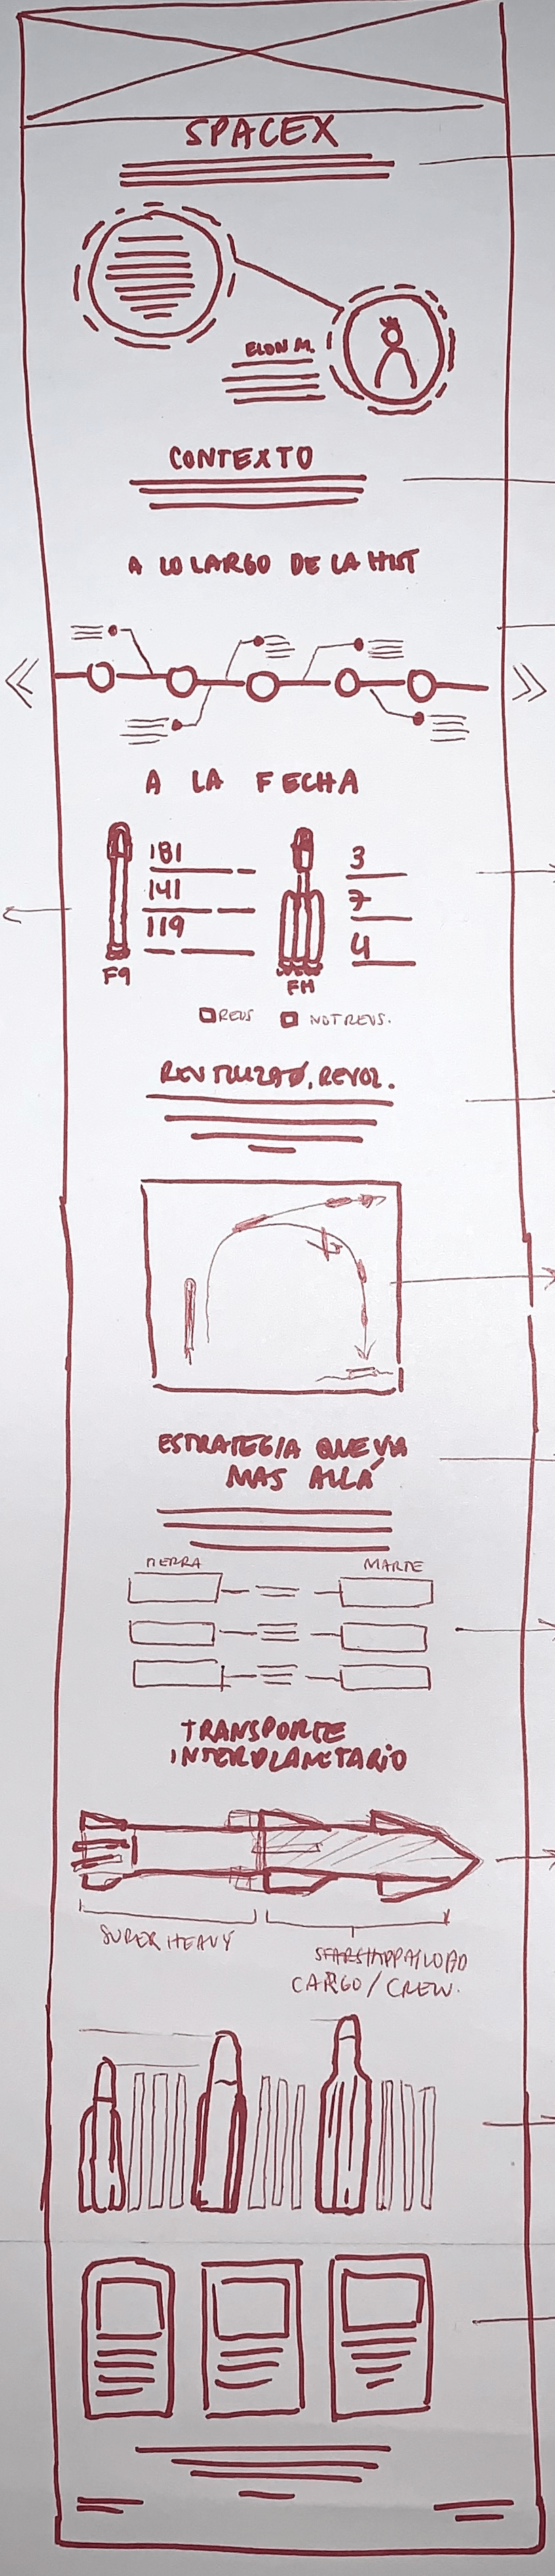 SPACEX
ELON M.
CONTEXTO
A LO LARGO DE LA HIST
A LA FECHA
181
141
119
F9
3
7
4
FH
REUS
NOT REUS.
REUTILIZAD, REVOL.
ESTRATEGIA QUE VA
MAS ALLÁ
TIERRA
MARTE
TRANSPORTE
INTERPLANETARIO
SUPER HEAVY
PAYLOAD
CARGO / CREW.